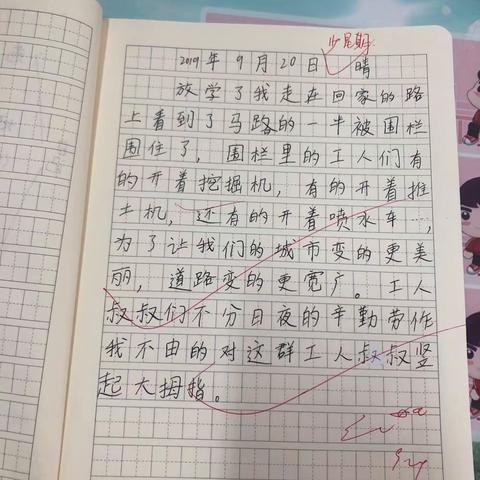 少星期
2019年9月20日 晴
放学了我走在回家的路
上看到了马路的一半被围栏
围住了，围栏里的工人们有
的开着挖掘机，有的开着推
土机，还有的开着喷水车……，
为了让我们的城市变的更美
丽，道路变的更宽广。工人
叔叔们不分日夜的辛勤劳作
我不由的对这群工人叔叔竖
起大拇指。